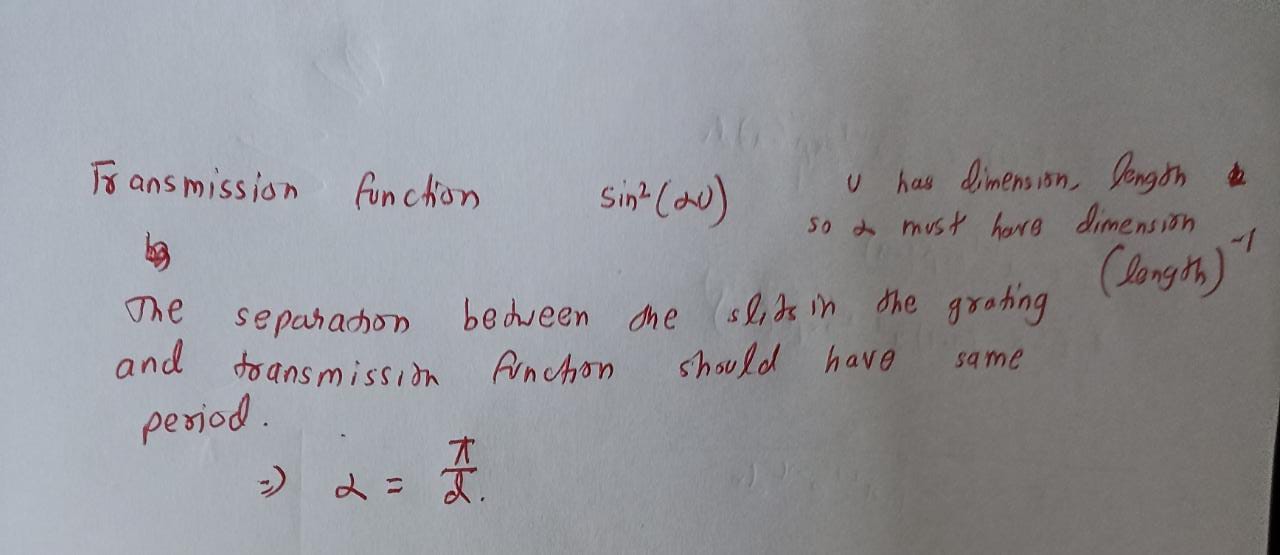 Transmission function sin²(αυ) υ has dimension, length
so α must have dimension
(length)⁻¹
The separation between the slits in the grating
and transmission function should have same
period.
⇒ α = π/d.